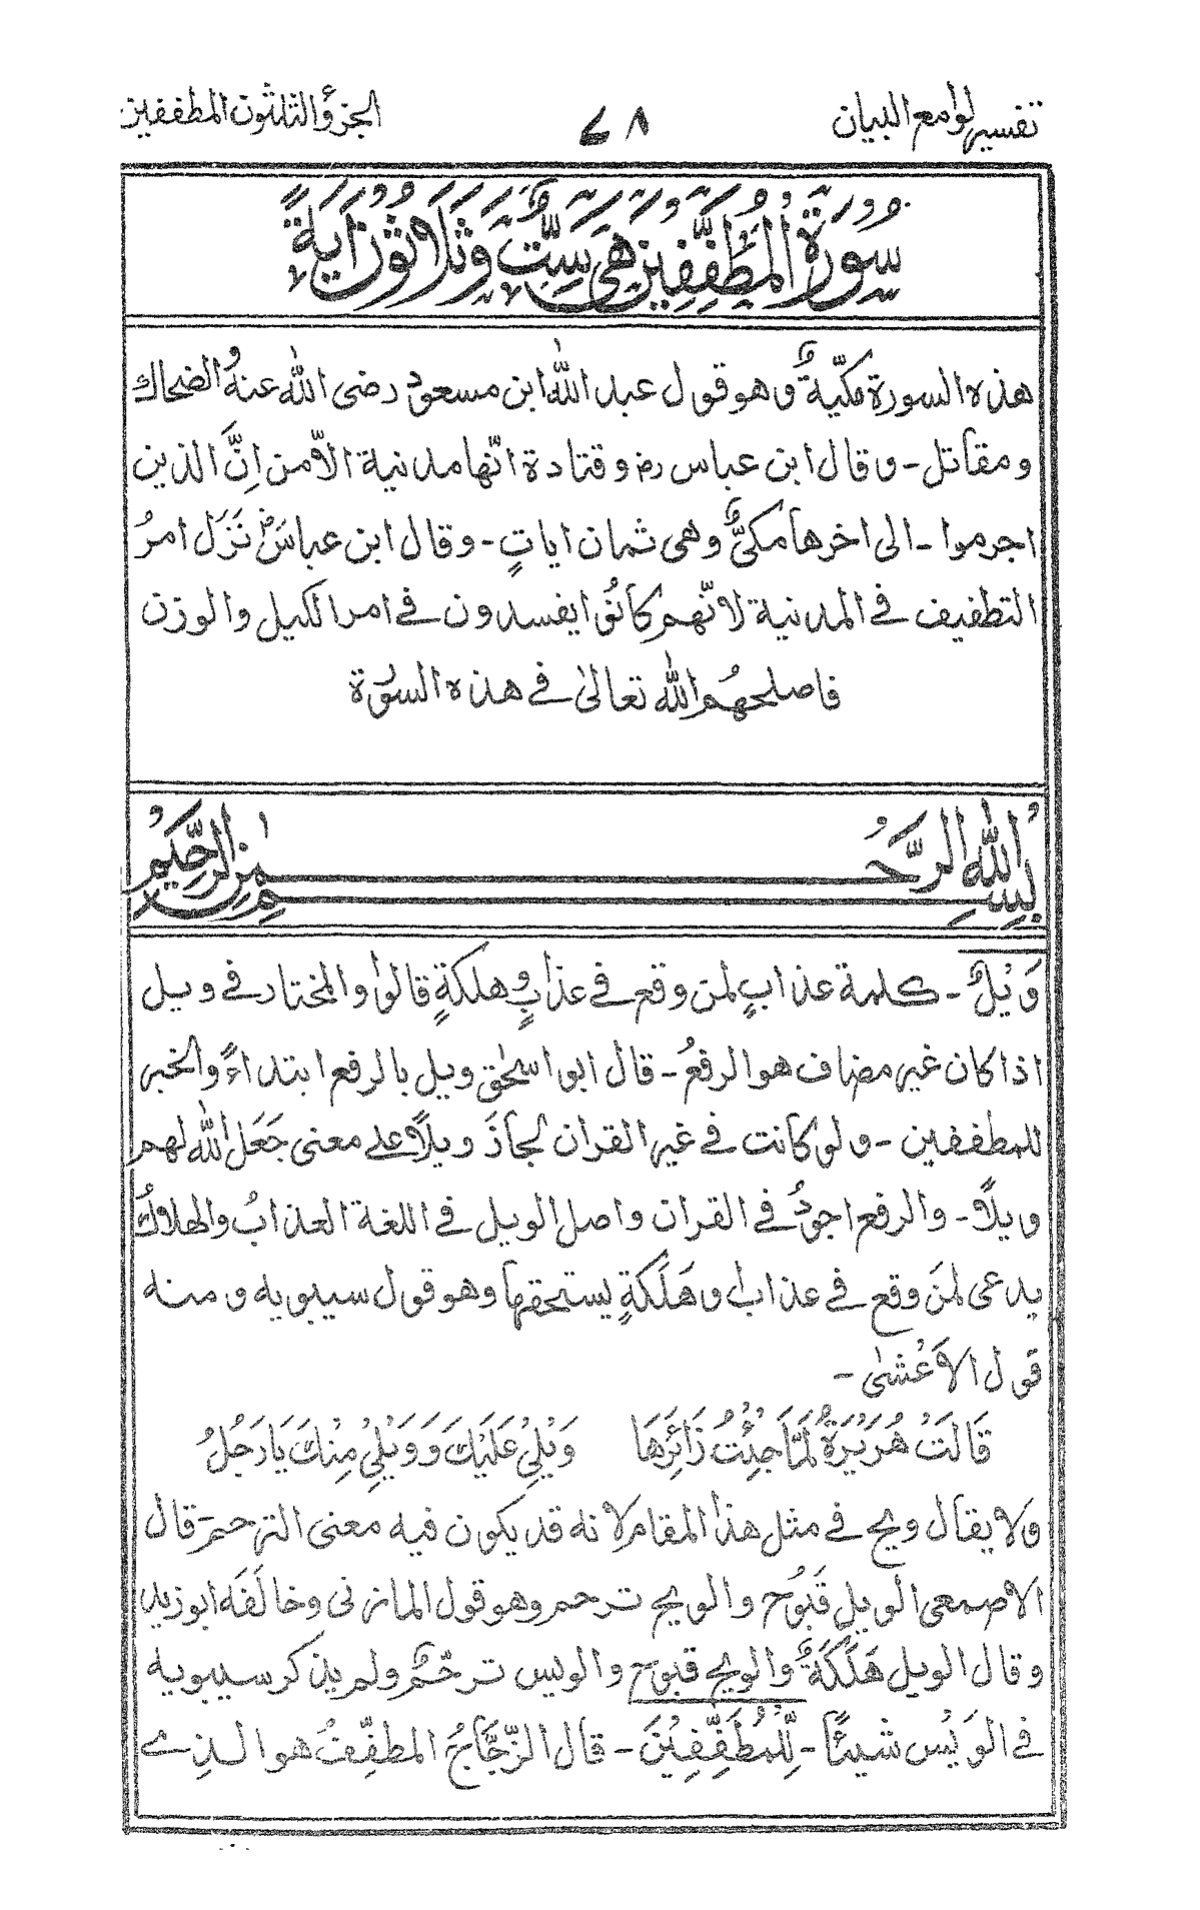 تفسير لوامع البيان ٧٨ الجزؤ الثلثون المطففين
سُوْرَةُ الْمُطَفِّفِيْنَ هِيَ سِتٌّ وَّثَلَاثُوْنَ اٰيَةً
هذه السورة مكّيةٌ وهو قول عبد الله ابن مسعود رضى الله عنهُ الضحاك
ومقاتل - وقال ابن عباس رض وقتادة انّها مدنية الّا من اِنَّ الذين
اجرموا - الى اخرها مكىٌّ وهى ثمان اياتٍ - وقال ابن عباسَ رض نَزَل امرُ
التطفيف فى المدنية لانّهم كانوا يفسدون فى امر الكيل والوزن
فاصلحهُم الله تعالىٰ فى هذه السُورة
بِسْمِ اللهِ الرَّحْمٰنِ الرَّحِيْمِ
وَيْلٌ - كلمة عذابٍ لمن وقع فى عذابٍ وهلكةٍ قالوا والمختار فى ويل
اذا كان غير مضاف هو الرفعُ - قال ابو اسحٰق ويل بالرفع ابتداءً والخبر
للمطففين - ولو كانت فى غير القران لجازَ ويلًا على معنى جَعَل الله لهم
ويلًا - والرفع اجودُ فى القران واصل الويل فى اللغة العذابُ والهلاكُ
يدعى لمَن وقع فى عذاب وهَلَكةٍ يستحقها وهو قول سيبويه ومنه
قول الاَعْشىٰ -
قَالَتْ هُرَيْرَةُ لَمَّا جِئْتُ زَائِرَهَا وَيْلِيْ عَلَيْكَ وَوَيْلِيْ مِنْكَ يَا رَجُلُ
ولا يقال ويح فى مثل هذا المقام لانه قد يكون فيه معنى الترحم - قال
الاصمعى الويل قَبُوْح والويح ترحم وهو قول المازنى وخالَفَه ابو زيد
وقال الويل هَلَكَةٌ والويح قبوح والويس ترحّمٌ ولم يذكر سيبويه
فى الوَيْس شيئًا - لِّلْمُطَفِّفِيْنَ - قال الزّجّاجُ المطفِّفُ هو الذى